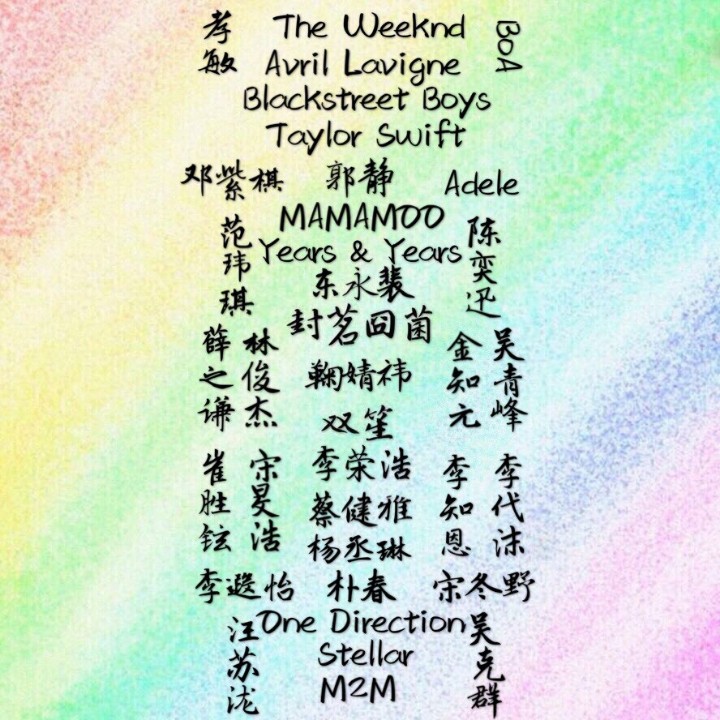 孝敏
The Weeknd
BoA
Avril Lavigne
Blackstreet Boys
Taylor Swift
邓紫棋
郭静
Adele
MAMAMOO
范玮琪
Years & Years
陈奕迅
东永裴
封茗囧菌
薛之谦
林俊杰
鞠婧祎
金知元
吴青峰
双笙
崔胜铉
宋旻浩
李荣浩
李知恩
李代沫
蔡健雅
杨丞琳
李遐怡
朴春
宋冬野
汪苏泷
One Direction
吴克群
Stellar
M2M